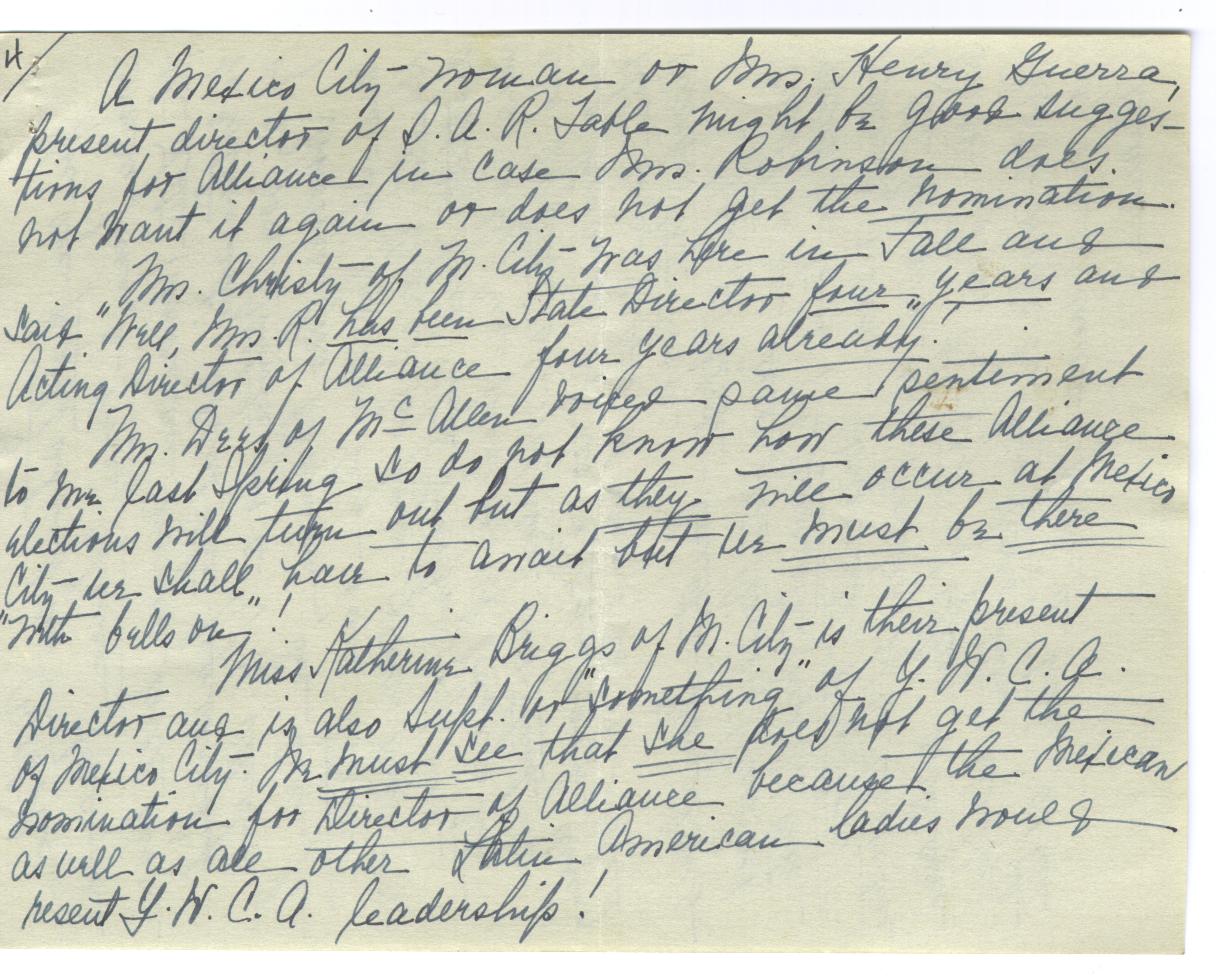 4/
A Mexico City woman or Mrs. Henry Guerra,
present director of S. A. R. Table might be good sugges-
tions for Alliance in case Mrs. Robinson does
not want it again or does not get the nomination.
Mrs. Christy of M. City was here in Fall and
said "Well, Mrs. R. has been State Director four years and
Acting Director of Alliance four years already."!
Mrs. of McAllen voiced same sentiment
to me last Spring so do not know how these Alliance
elections will turn out but as they will occur at Mexico
City we shall have to await but we must be there
"with bells on"!
Miss Katherine Briggs of M. City is their present
Director and is also Supt. or "something" of Y. W. C. A.
of Mexico City. We must see that she does not get the
nomination for Director of Alliance because the Mexican
as well as all other Latin American ladies would
resent Y. W. C. A. leadership!